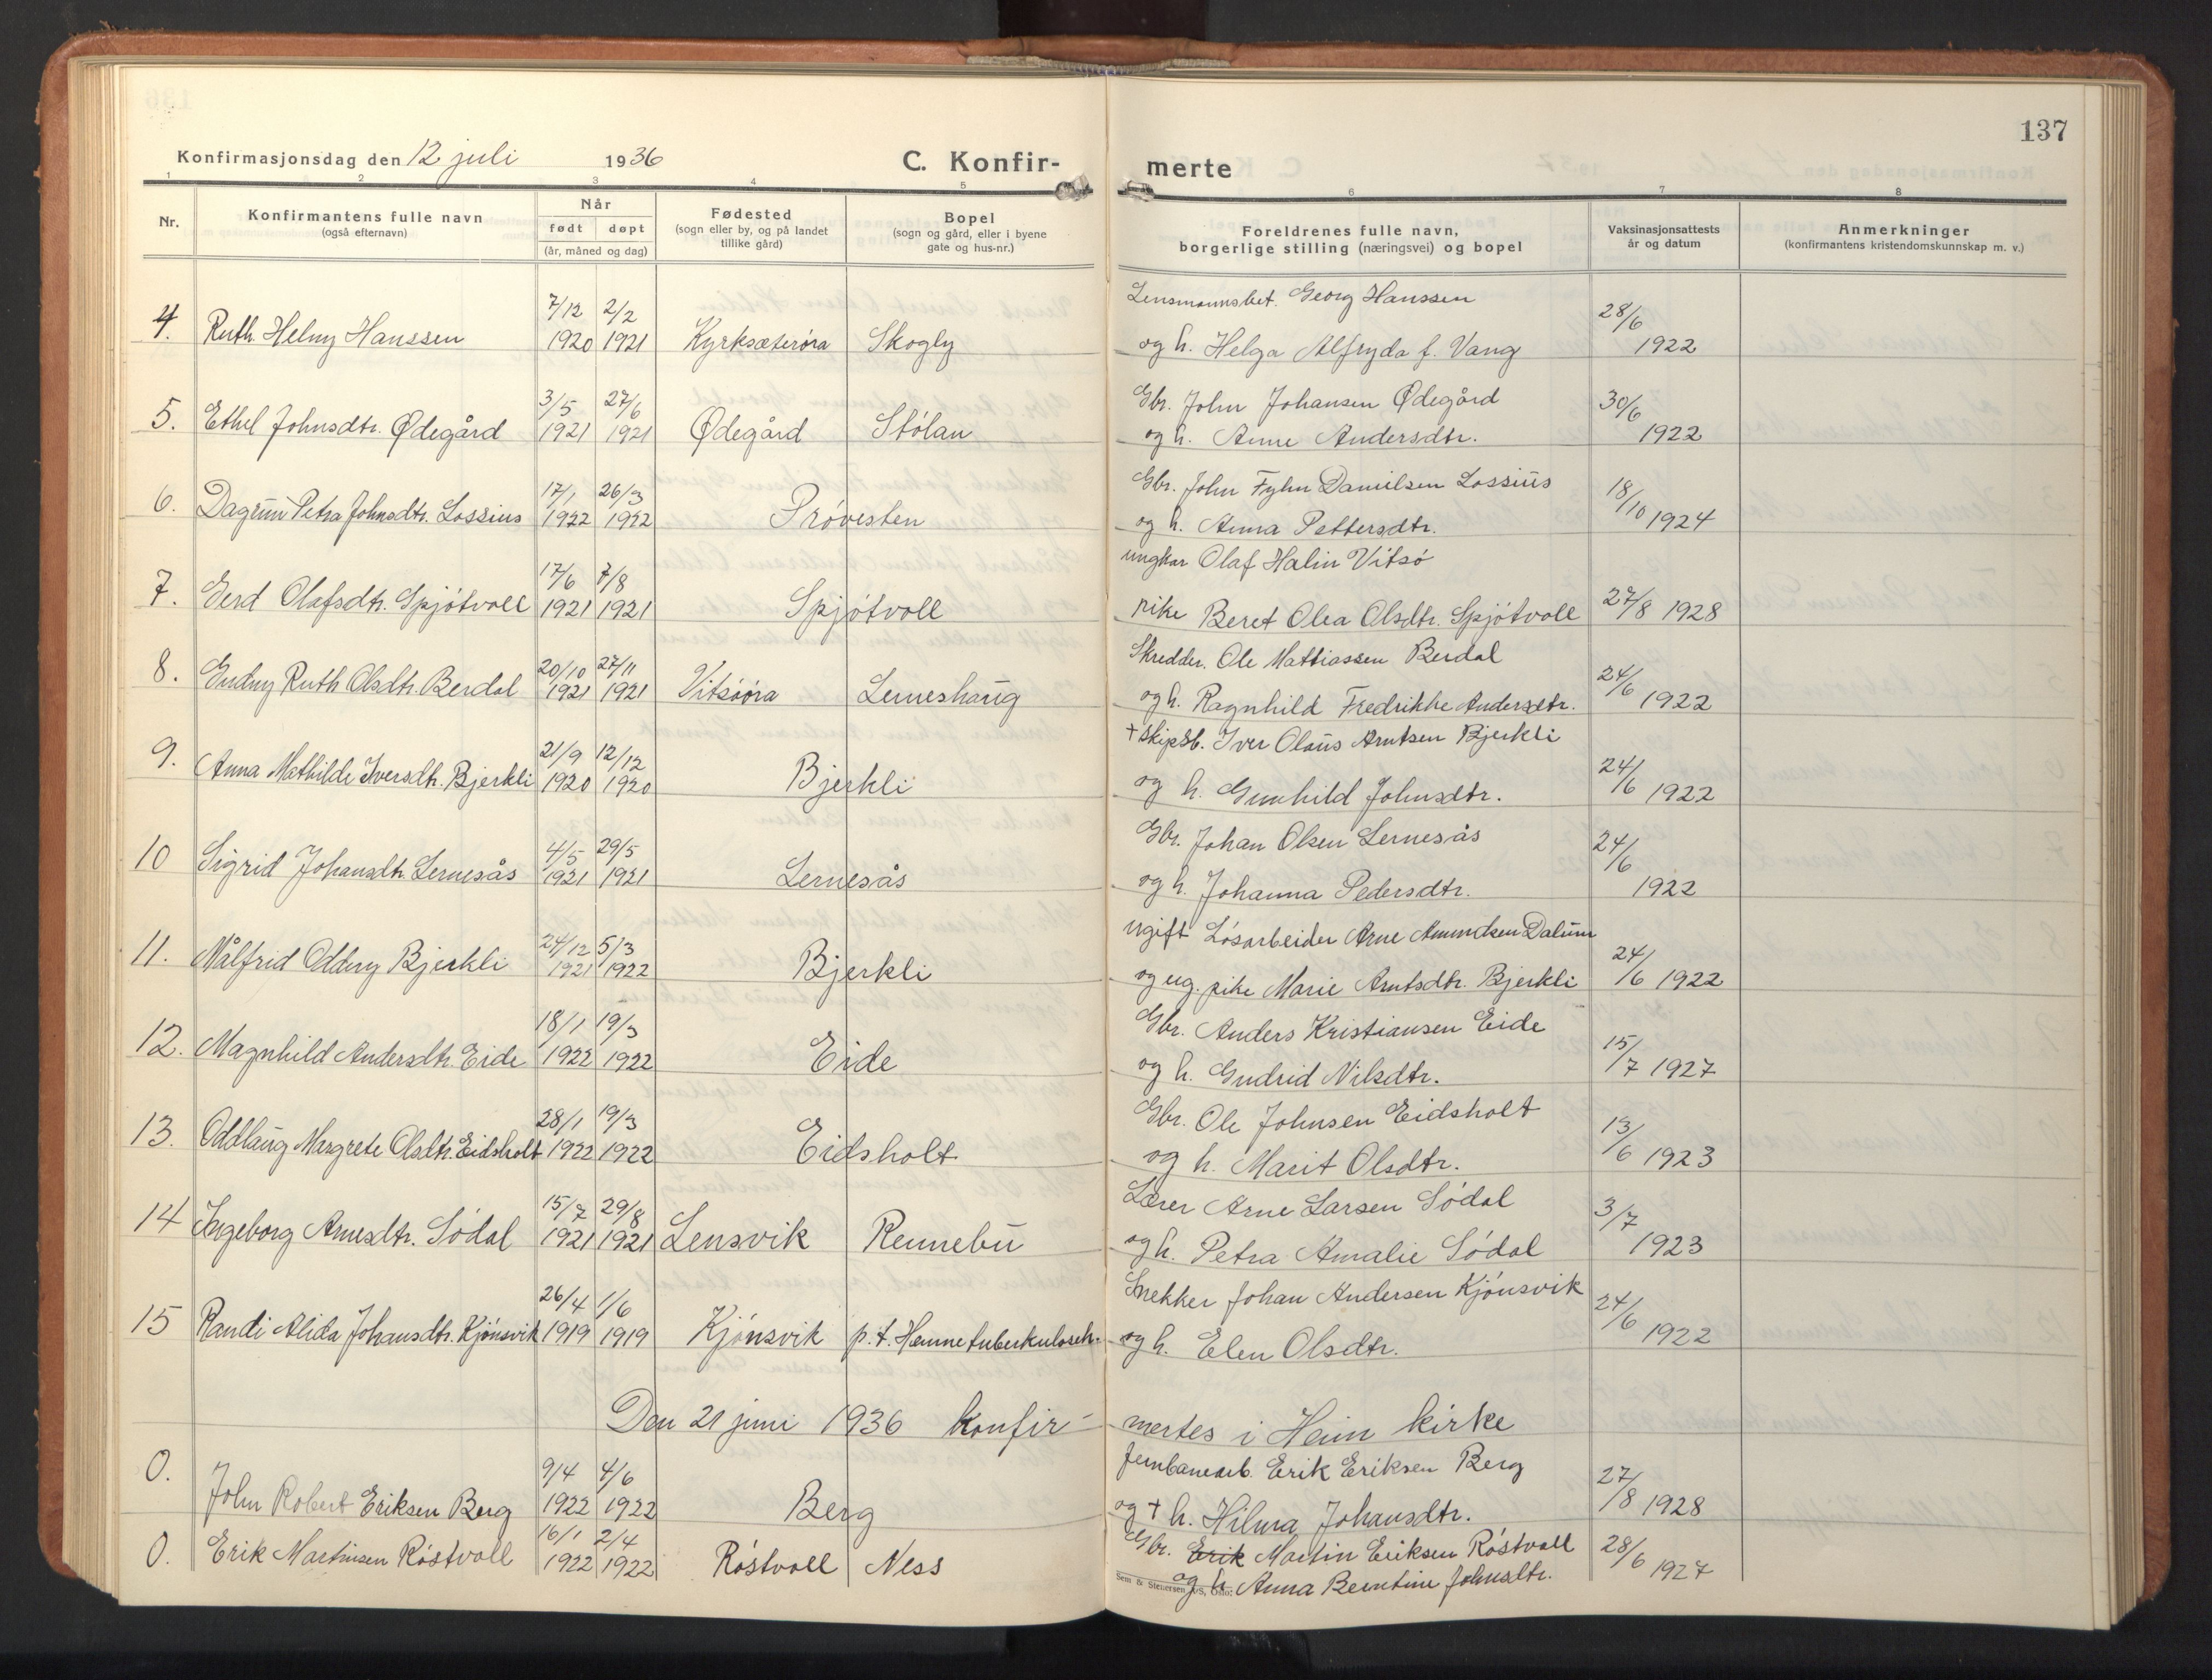 137
Konfirmasjonsdag den 12 juli 1936 C. Konfir- merte
1 2 3 4 5 6 7 8
Nr.
Konfirmantens fulle navn
(også efternavn)
Når
født døpt
(år, måned og dag)
Fødested
(sogn eller by, og på landet
tillike gård)
Bopel
(sogn og gård, eller i byene
gate og hus-nr.)
Foreldrenes fulle navn,
borgerlige stilling (næringsvei) og bopel
Vaksinasjonsattests
år og datum
Anmerkninger
(konfirmantens kristendomskunnskap m. v.)
7/12 2/2 Lensmannsbet. Georg Hanssen 28/6
4. Ruth Helmy Hanssen 1920 1921 Kyrksæterøra Skogly og h. Helga Alfryda f. Vang 1922
3/5 27/6 Gbr. John Johansen Ødegård 30/6
5. Ethel Johnsdtr. Ødegård 1921 1921 Ødegård Stólan og h. Anne Andersdtr. 1922
17/1 26/3 Gbr. John Fyhn Danielsen Lossius 18/10
6. Dagrun Petra Johnsdtr. Lossius 1922 1922 Próvesten og h. Anna Pettersdtr. 1924
17/6 7/8 ungkar Olaf Halin Vitsó
7. Gerd Olafsdtr. Spjótvoll 1921 1921 Spjótvoll pike Beret Olea Olsdtr. Spjótvoll 27/8 1928
20/10 27/11 Skredder. Ole Mattiassen Berdal 24/6
8. Gudny Ruth Olsdtr. Berdal 1921 1921 Vitsóóra Lerneshaug og h. Ragnhild Fredrikke Andersdtr. 1922
21/9 12/12 + skipsb. Iver Olaus Arntsen Bjerkli 24/6
9. Anna Mathilde Iversdtr. Bjerkli 1920 1920 Bjerkli og h. Gunhild Johnsdtr. 1922
4/5 29/5 Gbr. Johan Olsen Lernesås 24/6
10 Sigrid Johansdtr. Lernesås 1921 1921 Lernesås og h. Johanna Pedersdtr. 1922
24/12 5/3 ugift Lósarbeider Arne Amundsen Dalum 24/6
11. Målfrid Oddny Bjerkli 1921 1922 Bjerkli og ug. pike Marie Arntsdtr. Bjerkli 1922
18/1 19/3 Gbr. Anders Kristiansen Eide 15/7
12. Magnhild Andersdtr. Eide 1922 1922 Eide og h. Gudrid Nilsdtr. 1927
28/1 19/3 Gbr. Ole Johnsen Eidsholt 13/6
13. Oddlaug Margrete Olsdtr. Eidsholt 1922 1922 Eidsholt og h. Marit Olsdtr. 1923
15/7 29/8 Lærer Arne Larsen Sódal 3/7
14 Ingeborg Arnesdtr. Sódal 1921 1921 Lensvik Rennebu og h. Petra Amalie Sódal 1923
26/4 1/6 Snekker Johan Andersen Kjónsvik 24/6
15 Randi Alida Johansdtr. Kjónsvik 1919 1919 Kjónsvik p.t. Hemne tuberkuloseh. og h. Elen Olsdtr. 1922
Den 21 juni 1936 konfir- mertes i Heim kirke
0. 9/4 4/6 jernbanearb. Erik Eriksen Berg 27/8
John Robert Eriksen Berg 1922 1922 Berg og + h. Hilma Johansdtr. 1928
16/1 2/4 Gbr. Erik Martin Eriksen Róstvoll 28/6
0. Erik Martinsen Róstvoll 1922 1922 Róstvoll Ness og h. Anna Berntine Johnsdtr. 1927
Sem & Stenersen A/S, Oslo.